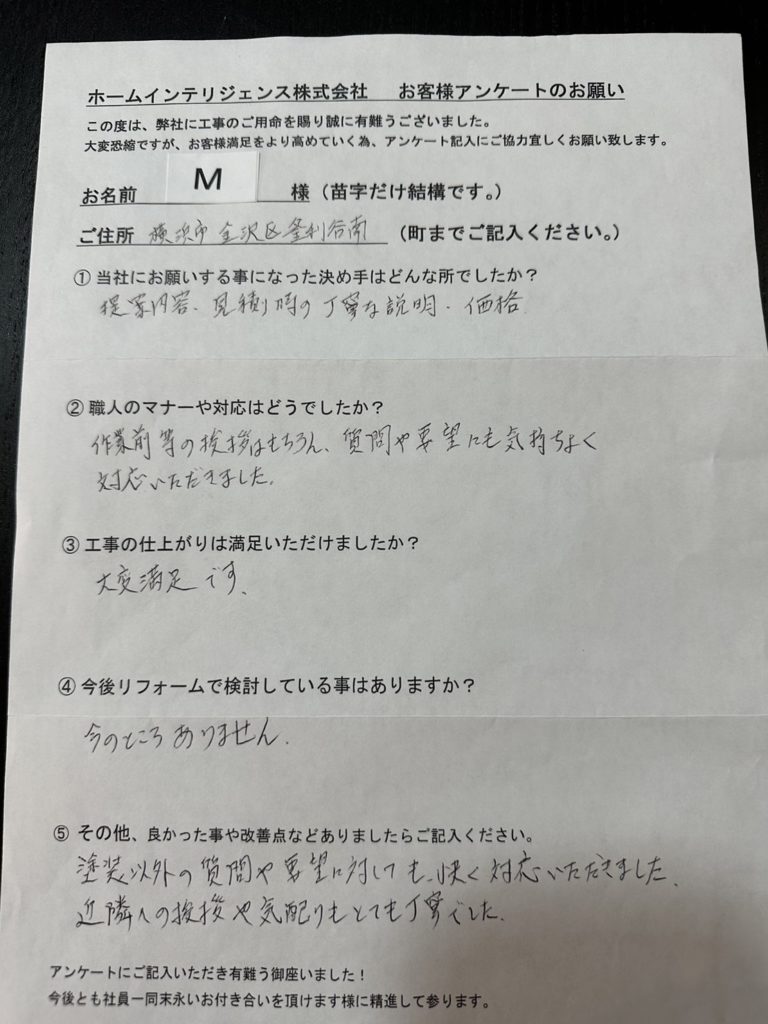 ホームインテリジェンス株式会社　お客様アンケートのお願い
この度は、弊社に工事のご用命を賜り誠に有難うございました。
大変恐縮ですが、お客様満足をより高めていく為、アンケート記入にご協力宜しくお願い致します。
お名前　M　様（苗字だけ結構です。）
ご住所　横浜市金沢区釜利谷南　（町までご記入ください。）
① 当社にお願いする事になった決め手はどんな所でしたか？
提案内容、見積り時の丁寧な説明・価格
② 職人のマナーや対応はどうでしたか？
作業前等の挨拶はもちろん、質問や要望にも気持ちよく
対応いただきました。
③ 工事の仕上がりは満足いただけましたか？
大変満足です、
④ 今後リフォームで検討している事はありますか？
今のところありません.
⑤ その他、良かった事や改善点などありましたらご記入ください。
塗装以外の質問や要望に対しても、快く対応いただきました、
近隣への挨拶や気配りもとても丁寧でした.
アンケートにご記入いただき有難う御座いました！
今後とも社員一同末永いお付き合いを頂けます様に精進して参ります。